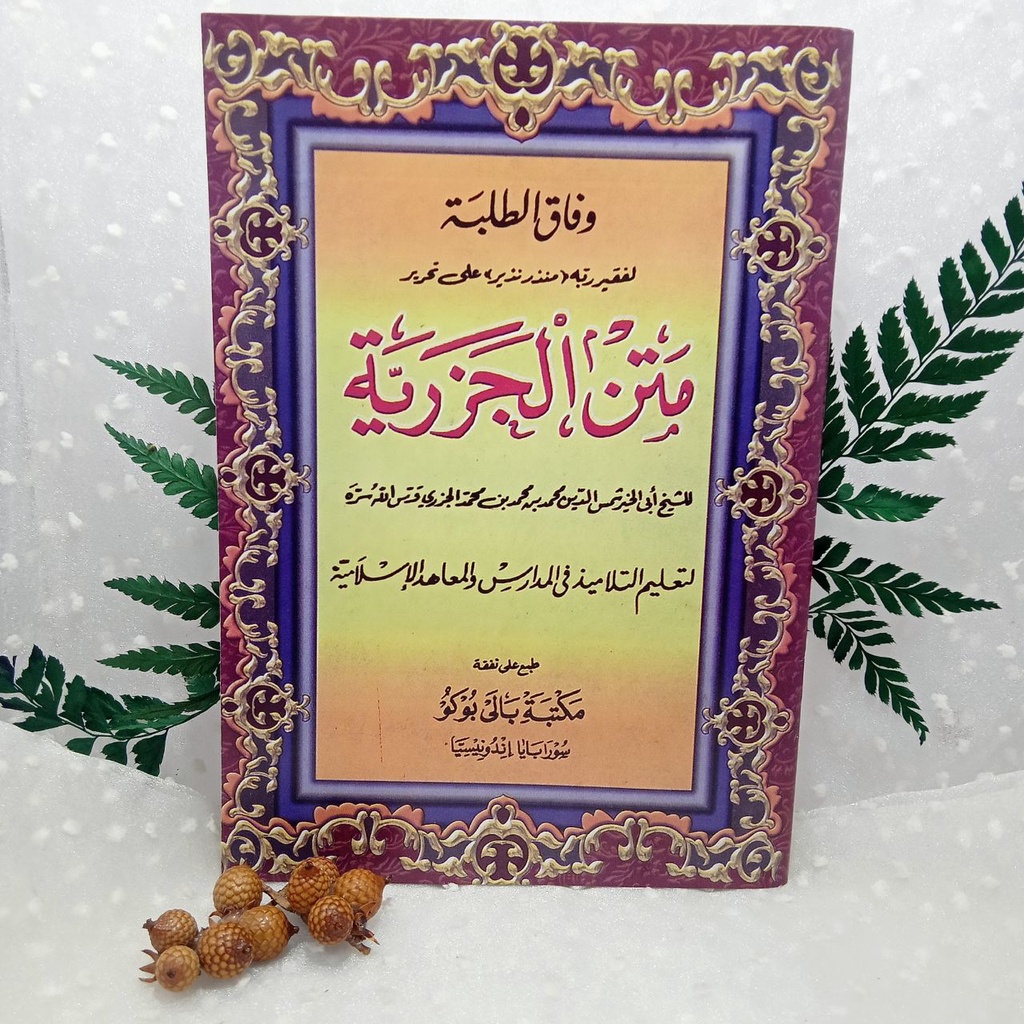 وفاق الطلبة
لفقير ربه «منذر نذير» على تحرير
مَتن الْجَزَرِيَّة
للشيخ أبى الخير شمس الدين محمد بن محمد بن محمد الجزري قدس الله سره
لتعليم التلاميذ فى المدارس والمعاهد الإسلامية
طبع على نفقة
مَكْتَبَة بَالَى بُوْكُوْ
سُوْرَابَايَا إِنْدُوْنِيْسِيَّا